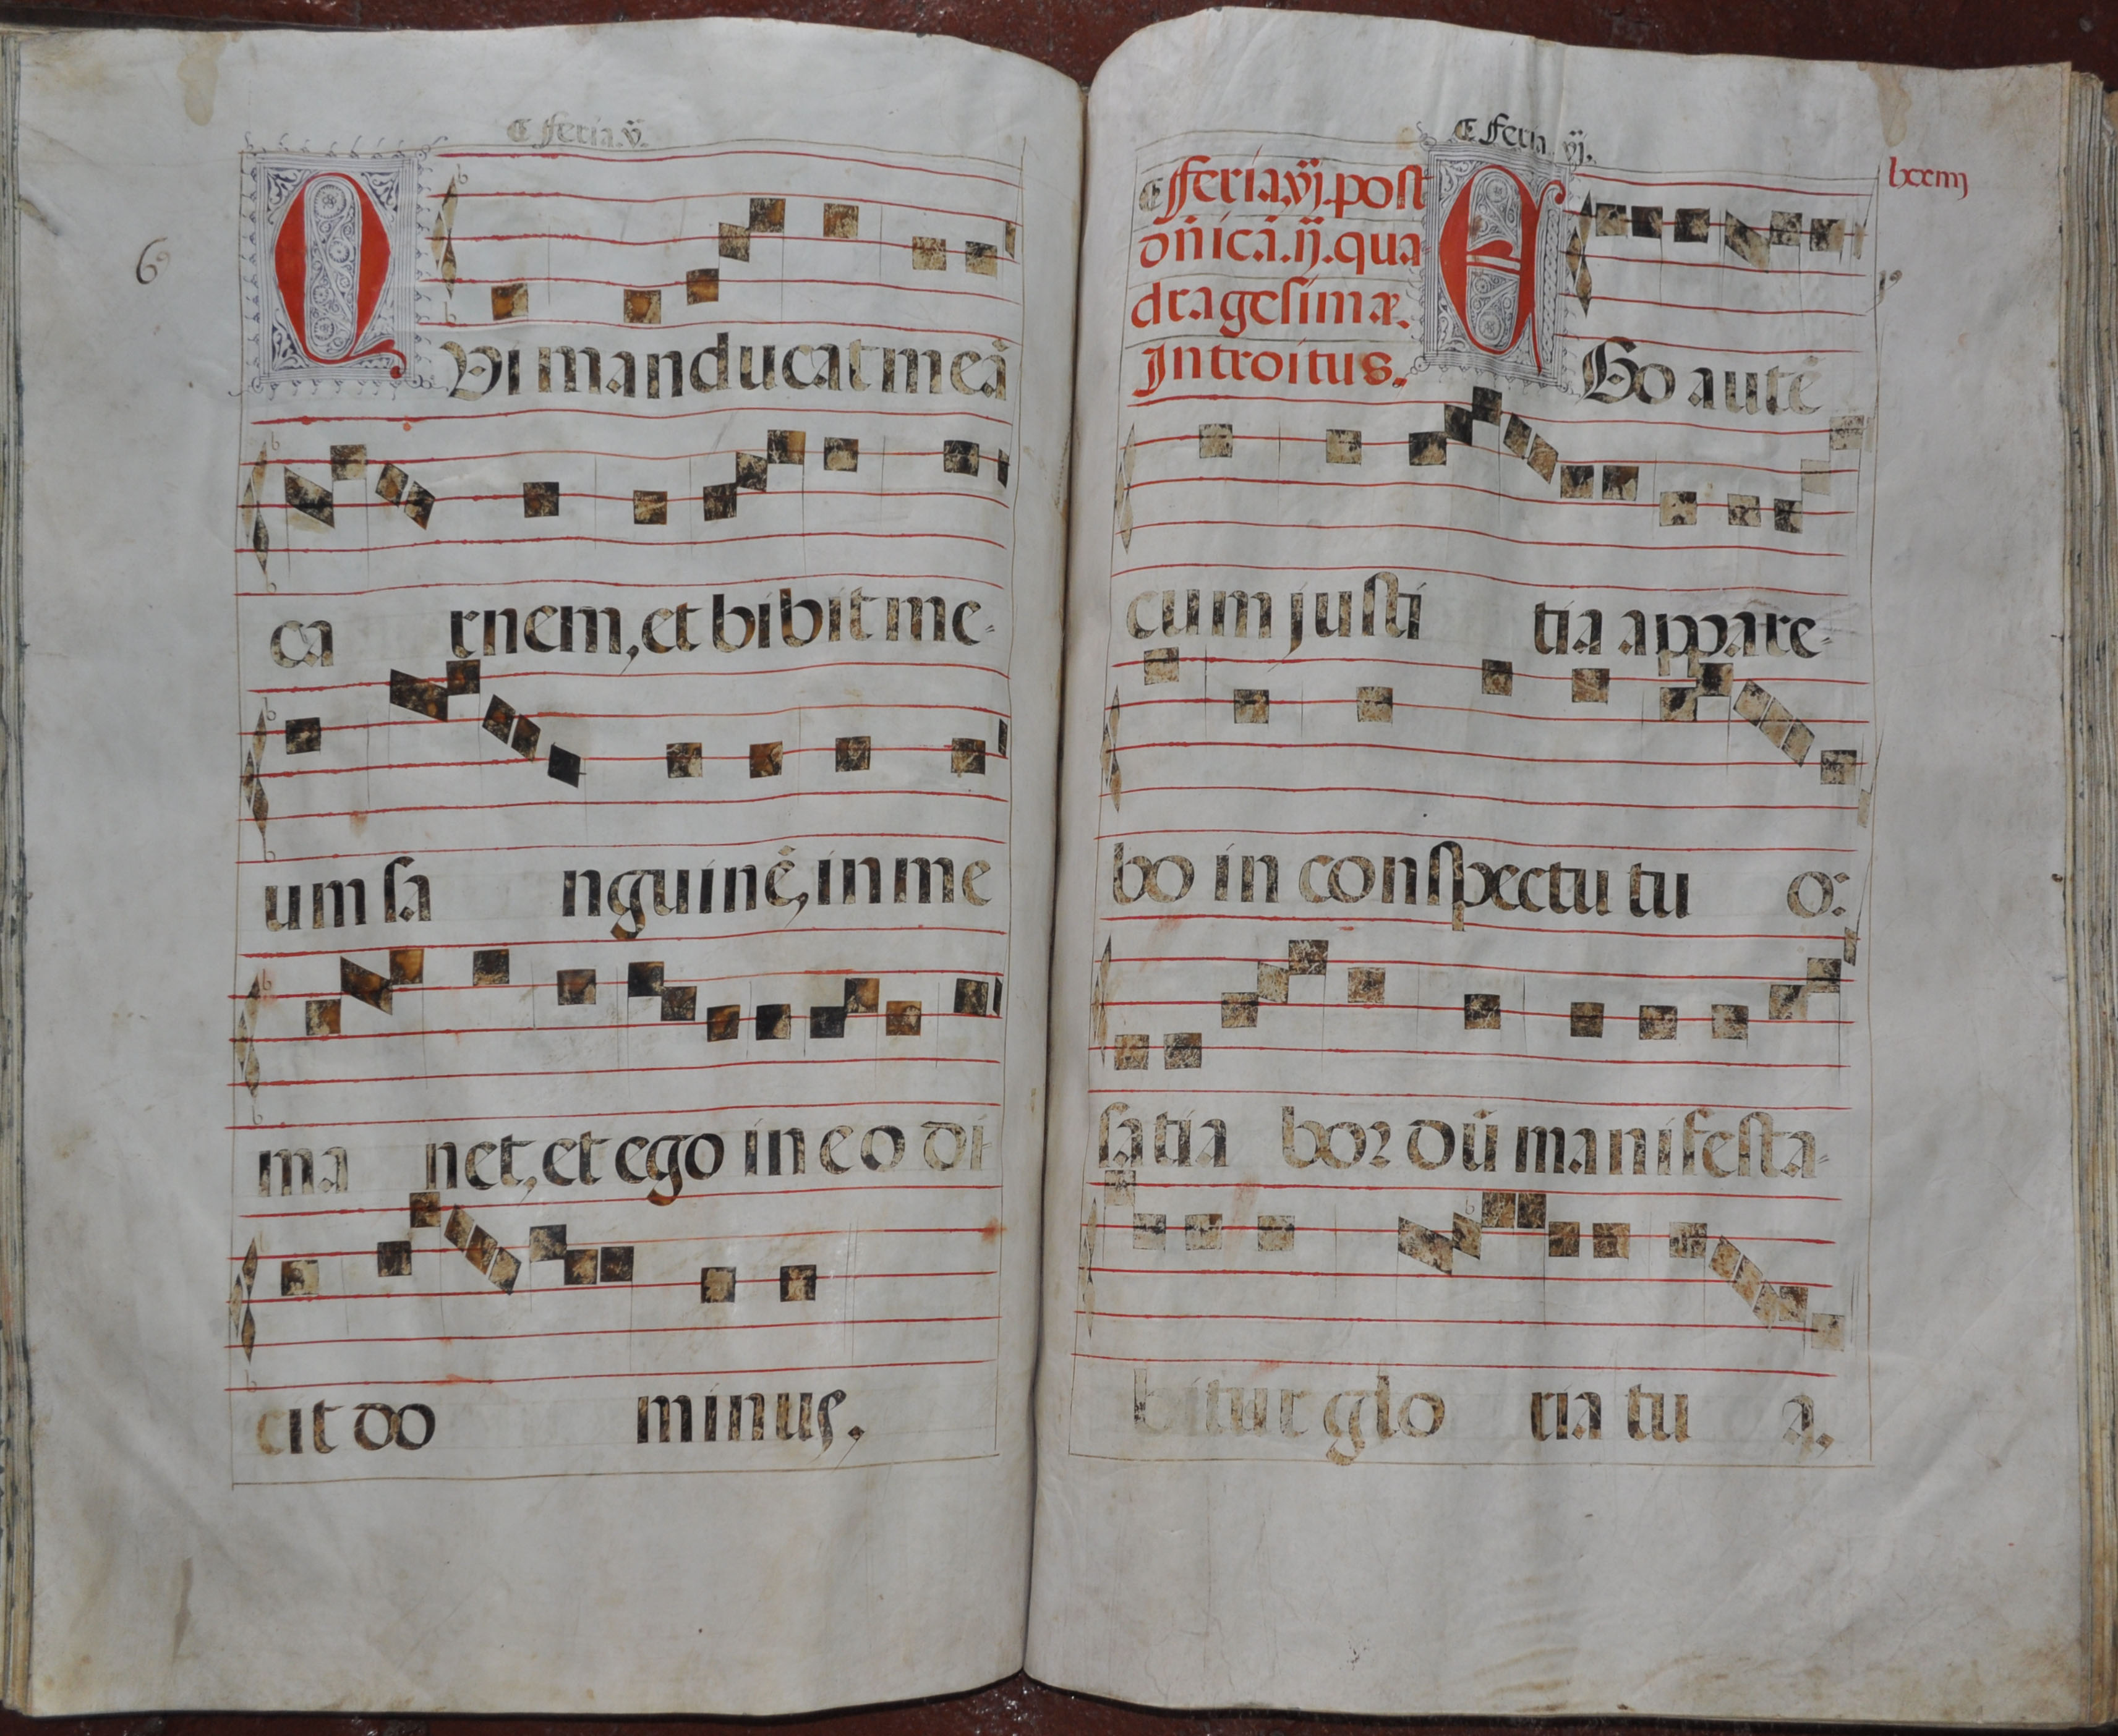 ¶ feria.v.
6
QVi manducat meā
ca rnem, et bibit me-
um sa nguinē, in me
ma net, et ego in eo di-
cit do minus.
¶ feria vj.
lxxiiij
¶ feria.vj. post
dn̄icā.ij. qua-
dragesimæ.
Introitus.
EGo autē
cum justi tia appare-
bo in conspectu tu o:
satia bor dū manifesta-
bitur glo ria tu a.